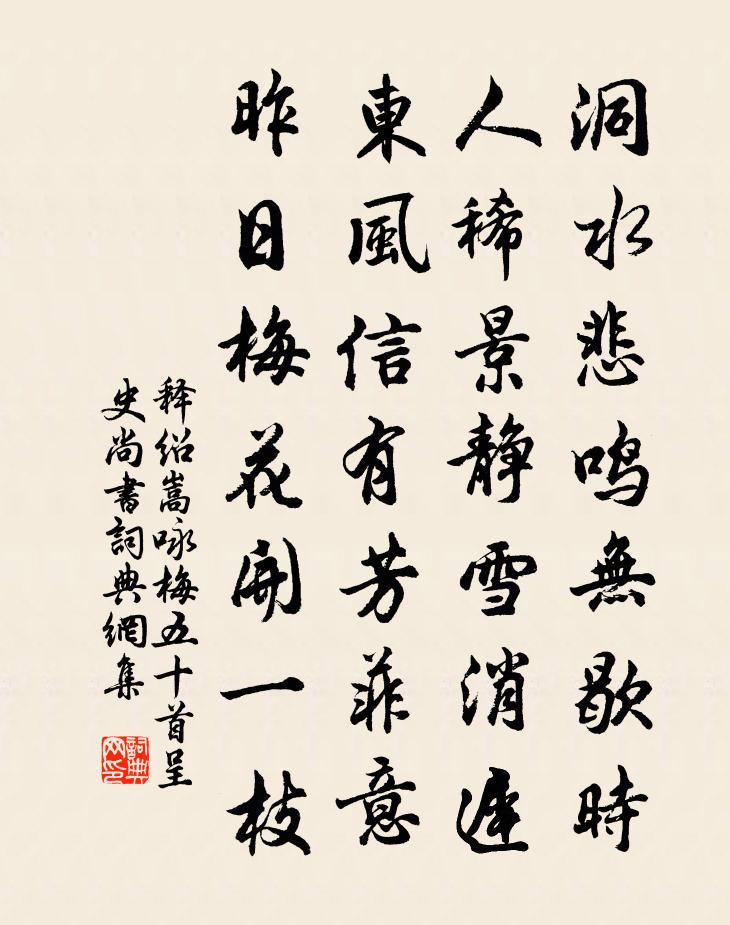 洞水悲鳴無歇時
人稀景静雪消遲
東風信有芳菲意
昨日梅花開一枝
释绍嵩咏梅五十首呈
史尚書詞典網集
詞典
网印